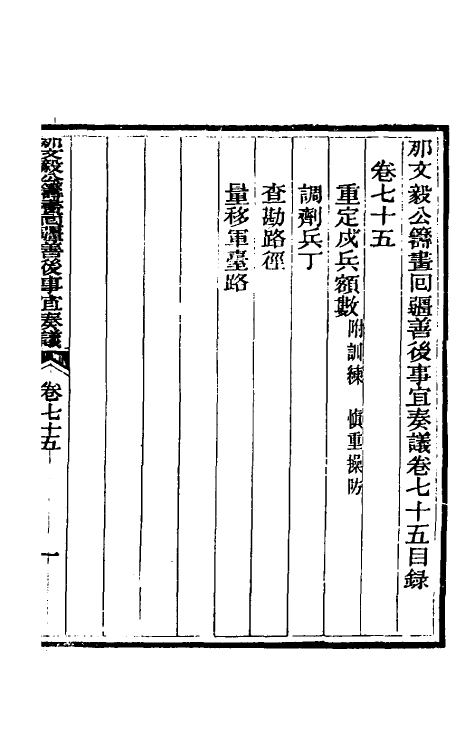 那文毅公籌畫回疆善後事宜奏議卷七十五目錄
卷七十五
重定戍兵額數附訓練 慎重操防
調劑兵丁
查勘路徑
量移軍臺路
那文毅公籌畫回疆善後事宜奏議
卷七十五
一